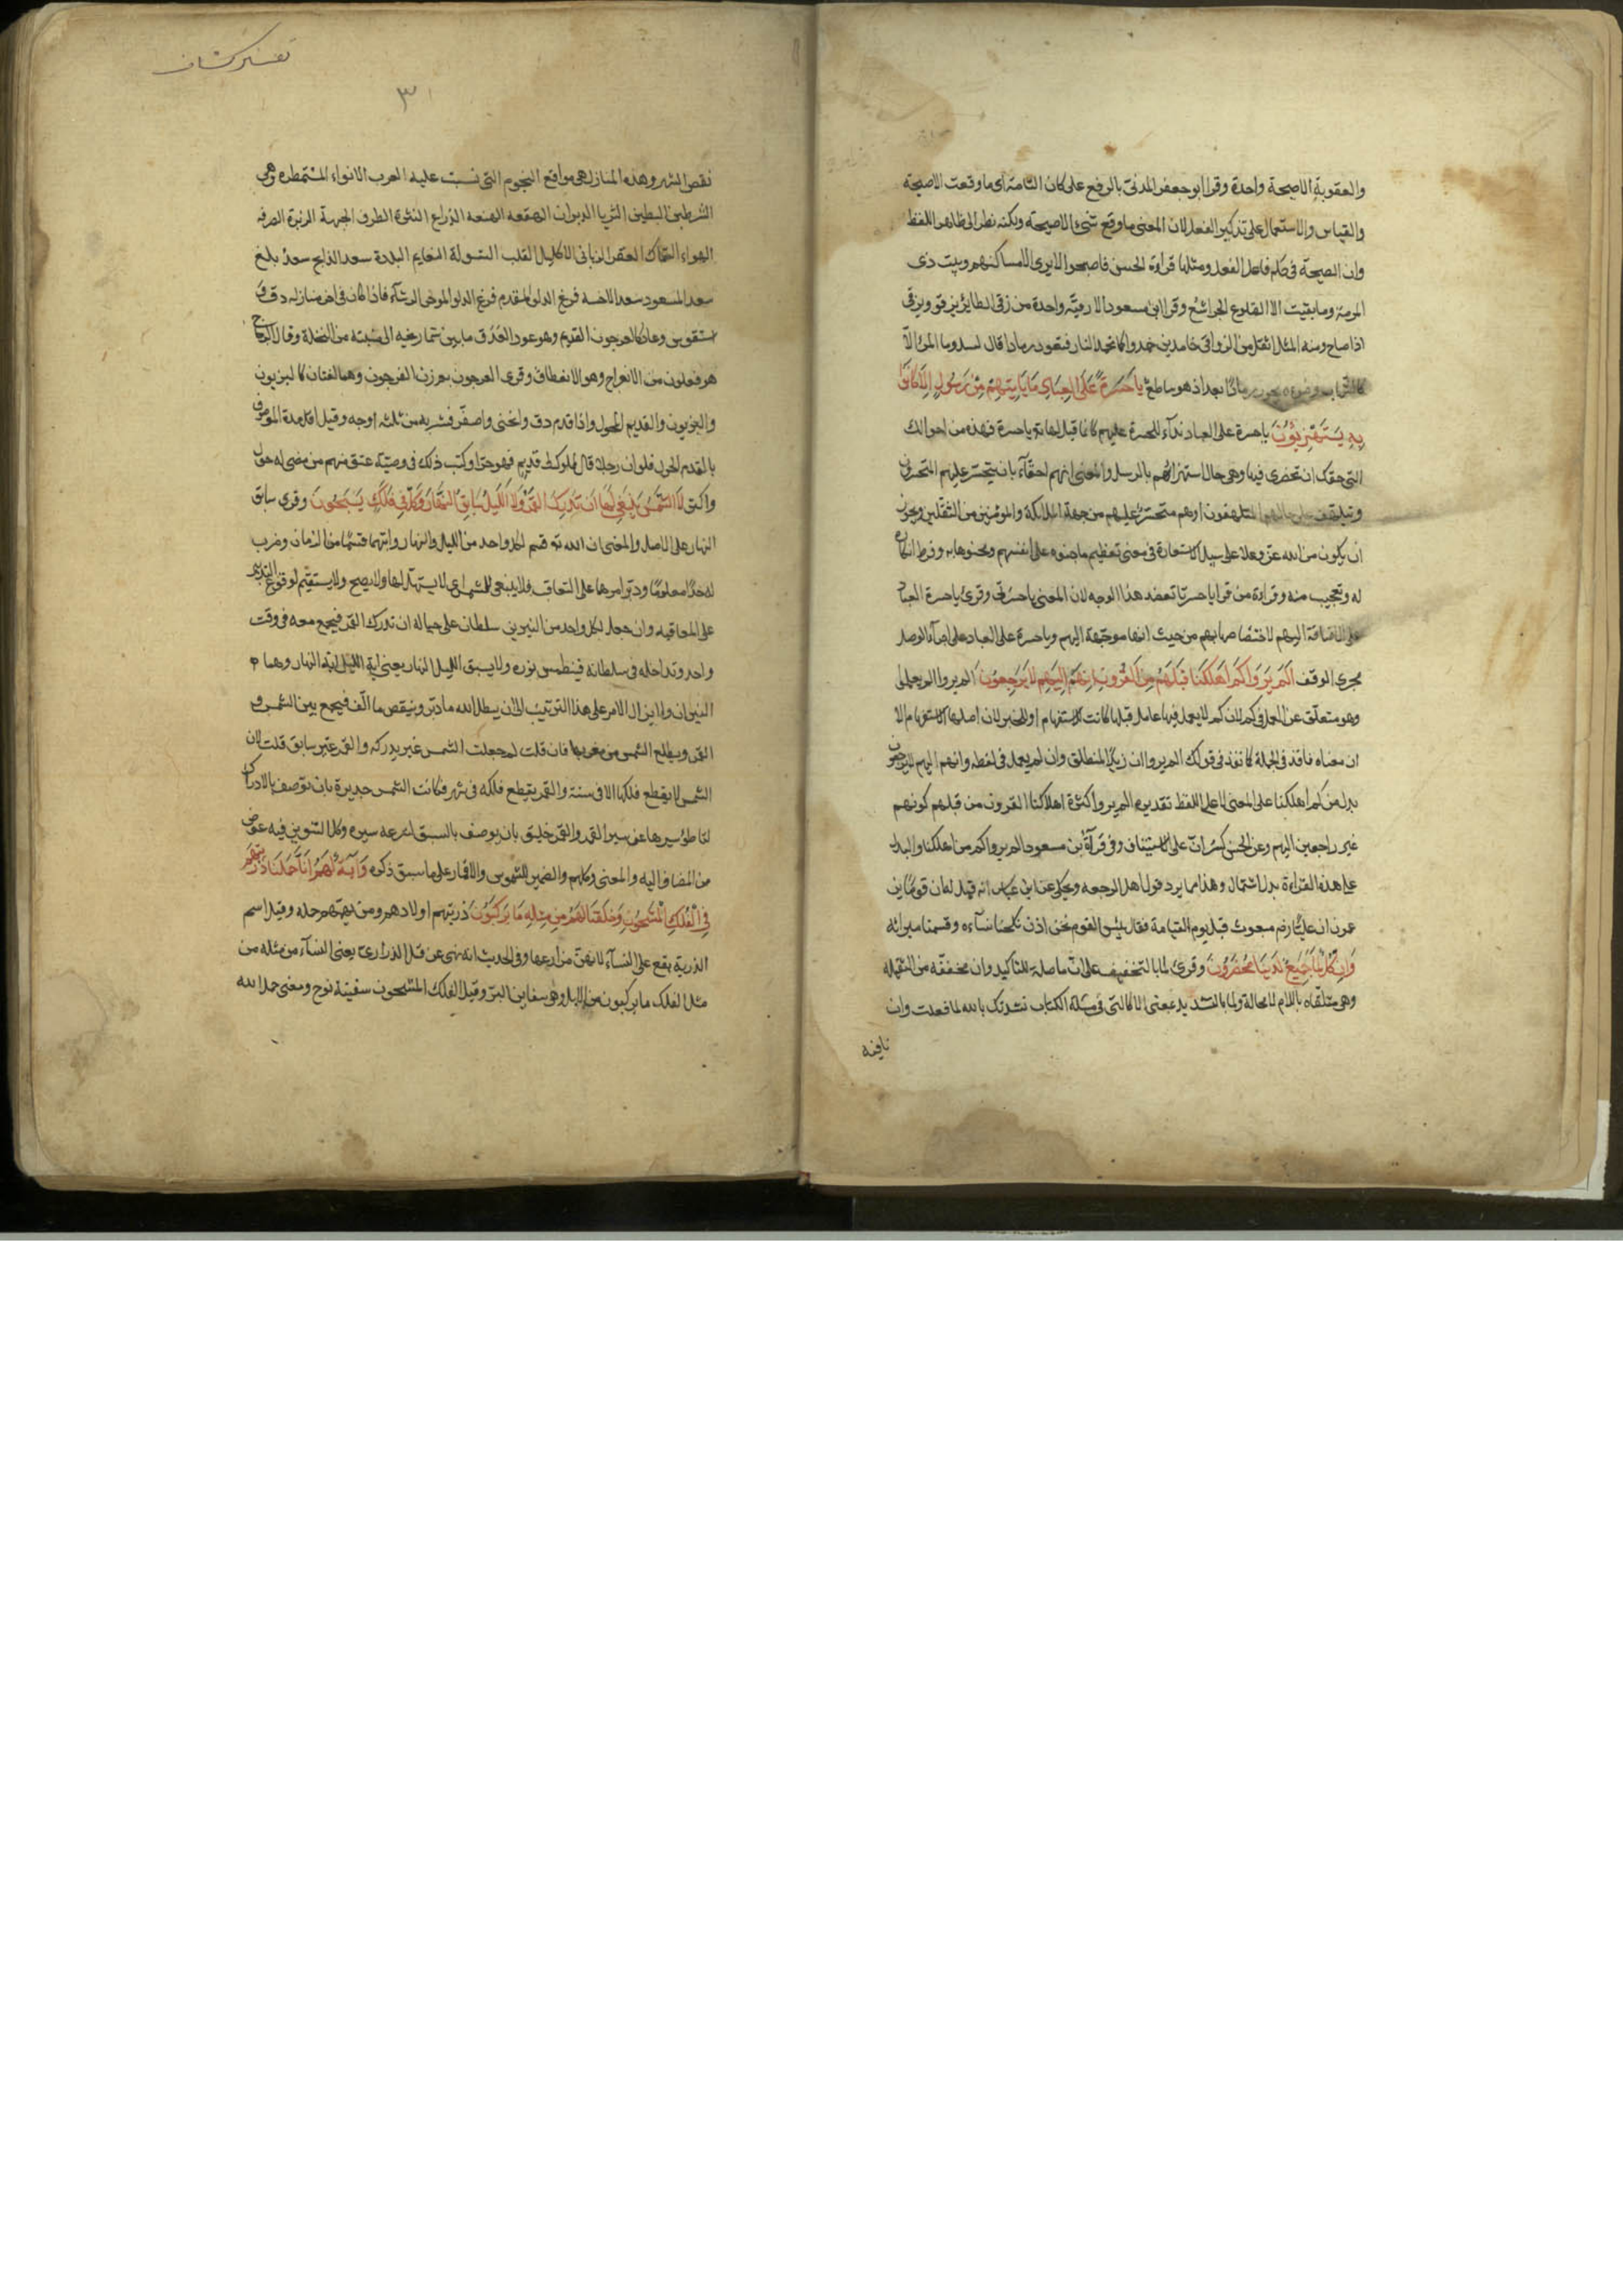 والعقوبة الا صيحة واحدة وقرا ابو جعفر المدنى بالرفع على كان التامة اى ما وقعت الا صيحة
والقياس والاستعمال على تذكير الفعل لان المعنى ما وقع شئ الا صيحة ولكنه نظر الى ظاهر اللفظ
وان الصيحة فى حكم فاعل الفعل ومثلها قراءة الحسن فاصبحوا لا يرى الا مساكنهم وبيت ذى
الرمة وما بقيت الا الضلوع الجراشع وقرا ابن مسعود الا زقية واحدة من زقى الطاير يزقو ويزقى
اذا صاح ومنه المثل اثقل من الزواقى خامدين خمدوا كما تخمد النار فتعود رمادا كما قال لبيد وما المرؤ الا
كالشهاب وضوءه يحور رمادًا بعد اذ هو ساطع يَا حَسْرَةً عَلَى العِبَادِ مَا يَأتِيهِمْ مِنْ رَسُولٍ اِلَّا كَانُوا
بِهِ يَسْتَهْزِؤُنَ يا حسرة على العباد نداء للحسرة عليهم كانما قيل لها تعالى يا حسرة فهذه من احوالك
التى حقك ان تحضرى فيها وهى حال استهزائهم بالرسل والمعنى انهم احقاء بان يتحسر عليهم المتحسرون
ويتلهف على حالهم المتلهفون او هم متحسر عليهم من جهة الملائكة والمؤمنين من الثقلين ويجوز
ان يكون من الله عز وعلا على سبيل الاستعارة فى معنى تعظيم ما جنوه على انفسهم ومحنوها به وفرط انكاره
له وتعجيبه منه وقراءة من قرا يا حسرتا تعضد هذا الوجه لان المعنى يا حسرتى وقرئ يا حسرة العباد
على الاضافة اليهم لاختصاصها بهم من حيث انها موجهة اليهم ويا حسره على العباد على اجراء الوصل
مجرى الوقف اَلَمْ يَرَوْا كَمْ اَهْلَكْنَا قَبْلَهُمْ مِنَ القُرُونِ اَنَّهُمْ اِلَيْهِمْ لَا يَرْجِعُونَ الم يروا الم يعلموا
وهو متعلق عن العمل فى كم لان كم لا يعمل فيها عامل قبلها كانت للاستفهام او للخبر لان اصلها الاستفهام الا
ان معناه نافذ فى الجملة كما نفذ فى قولك الم يروا ان زيدًا لمنطلق وان لم يعمل فى لفظه وانهم اليهم لا يرجعون
بدل من كم اهلكنا على المعنى لا على اللفظ تقديره الم يروا كثرة اهلاكنا القرون من قبلهم كونهم
غير راجعين اليهم وعن الحسن كسر ان على الاستيناف وفى قراءة ابن مسعود الم يروا كم من اهلكنا والبدل
على هذه القراءة بدل اشتمال وهذا مما يرد قول اهل الرجعه ويحكى عن ابن عباس انه قيل له ان قومًا يزعمون
ان عليًا رضم مبعوث قبل يوم القيامة فقال بئس القوم نحن اذن نكحنا نساءه وقسمنا ميراثه
وَاِنْ كُلٌّ لَمَّا جَمِيعٌ لَدَيْنَا مُحْضَرُونَ وقرئ لما بالتخفيف على ان ما صلة للتاكيد وان مخففة من الثقيله
وهى متلقاه باللام لا محالة ولما بالتشديد بمعنى الا كالتى فى مسئلة الكتاب نشدتك بالله لما فعلت وان
نافيه
تفسير كشاف
٣١
نقص الشهر وهذه المنازل هى مواقع النجوم التى نسبت عليه العرب الانواء المستمطره وهى
الشرطين البطين الثريا الدبران الهقعه الهنعه الذراع النثرة الطرف الجبهة الزبرة الصرفه
العواء السماك الغفر الزبانى الاكليل القلب الشولة النعايم البلدة سعد الذابح سعد بلع
سعد السعود سعد الاخبيه فرغ الدلو المقدم فرغ الدلو الموخر الرشاء فاذا كان فى اخر منازله دق و
استقوس وعاد كالعرجون القديم وهو عود العذق ما بين شماريخه الى منبته من النخلة وقال الزجاج
هو فعلون من الانعراج وهو الانعطاف وقرى العرجون بوزن الفرجون وهما لغتان كالبزيون
والبزيون والقديم المحول واذا قدم دق وانحنى واصفر فشبه به من ثلثه اوجه وقيل اقل مدة الموصوف
بالقدم الحول فلو ان رجلا قال كل مملوك لى قديم فهو حر او كتب ذلك فى وصيته عتق منهم من مضى له حول
واكثر لَا الشَّمْسُ يَنْبَغِى لَهَا اَنْ تُدْرِكَ القَمَرَ وَلَا اللَّيْلُ سَابِقُ النَّهَارِ وَكُلٌّ فِى فَلَكٍ يَسْبَحُونَ وقرى سابق
النهار على الاصل والمعنى ان الله تع قسم لكل واحد من الليل والنهار وايتهما قسمًا من الزمان وضرب
له حدًا معلومًا ودبر امرها على التعاقب فلا ينبغى للشمس اى لا يتسهل لها ولا يصح ولا يستقيم لوقوع التدبير
على المعاقبه وان جعل لكل واحد من النيرين سلطان على حياله ان تدرك القمر فيجتمع معه فى وقت
واحد وتداخله فى سلطانه فيطمس نوره ولا يسبق الليل النهار يعنى اية الليل اية النهار وهما
النيران ولا يزال الامر على هذا الترتيب الى ان يبطل الله ما دبر وينقص ما الف فيجمع بين الشمس و
القمر ويطلع الشمس من مغربها فان قلت لم جعلت الشمس غير مدركه والقمر غير سابق قلت لان
الشمس لا يقطع فلكها الا فى سنة والقمر يقطع فلكه فى شهر فكانت الشمس جديرة بان توصف بالادراك
لتباطؤ سيرها عن سير القمر والقمر خليق بان يوصف بالسبق لسرعه سيره وكل التنوين فيه عوض
من المضاف اليه والمعنى وكلهم والضمير للشموس والاقمار على ما سبق ذكره وَآيَةٌ لَهُمْ اَنَّا حَمَلْنَا ذُرِّيَّتَهُمْ
فِى الْفُلْكِ الْمَشْحُونِ وَخَلَقْنَا لَهُمْ مِنْ مِثْلِهِ مَا يَرْكَبُونَ ذريتهم اولادهم ومن يهمهم حمله وقيل اسم
الذرية يقع على النساء لانهن مزارعها وفى الحديث انه نهى عن قتل الذرارى يعنى النساء من مثله من
مثل الفلك ما يركبون من الابل وهى سفاين البر وقيل الفلك المشحون سفينة نوح ومعنى حمل الله